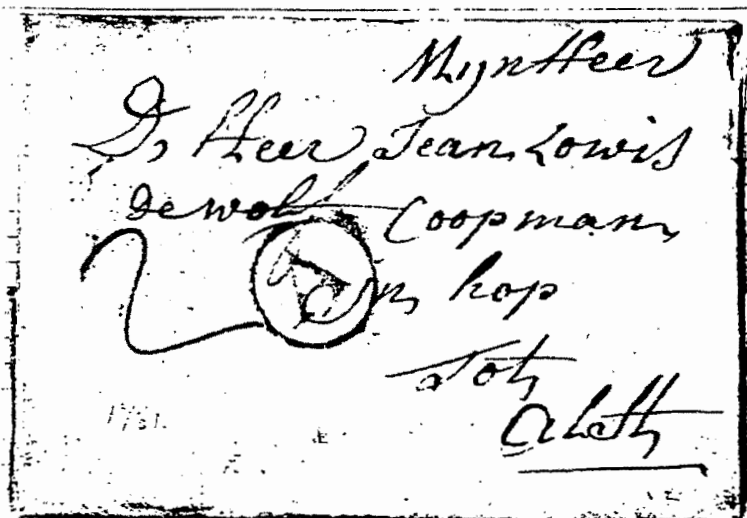 MijnHeer
D, Heer Jean Lowis
de wolf Coopman
in hop
Tot
Alost
1781.